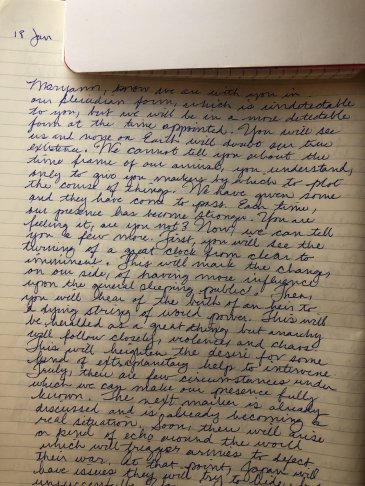 18 Jan
Maryann, know we are with you in
our pleiadian form, which is undetectable
to you, but we will be in a more detectable
form at the time appointed. You will see
us and none on Earth will doubt our true
existence. We cannot tell you about the
time frame of our arrival, you understand,
only to give you markers by which to plot
the course of things. We have given some
and they have come to pass. Each time,
our presence has become stronger. You are
feeling it, are you not? Now, we can tell
you a few more. First, you will see the
turning of a great clock from clear to
imminent. This will mark the change,
on our side, of having more influence
upon the general sleeping public. Then,
you will hear of the birth of an heir to
a dying string of world power. This will
be heralded as a great thing but anarchy
will follow closely, violence and chaos.
This will heighten the desire for some
kind of extraplanetary help to intervene
Truly, there are few circumstances under
which we can make our presence fully
known. The next marker is already
discussed and is already becoming a
real situation. Soon, there will arise
a kind of echo around the world
which will trigger armies to
their war. At that point, Japan will
have issues they will try to hide,